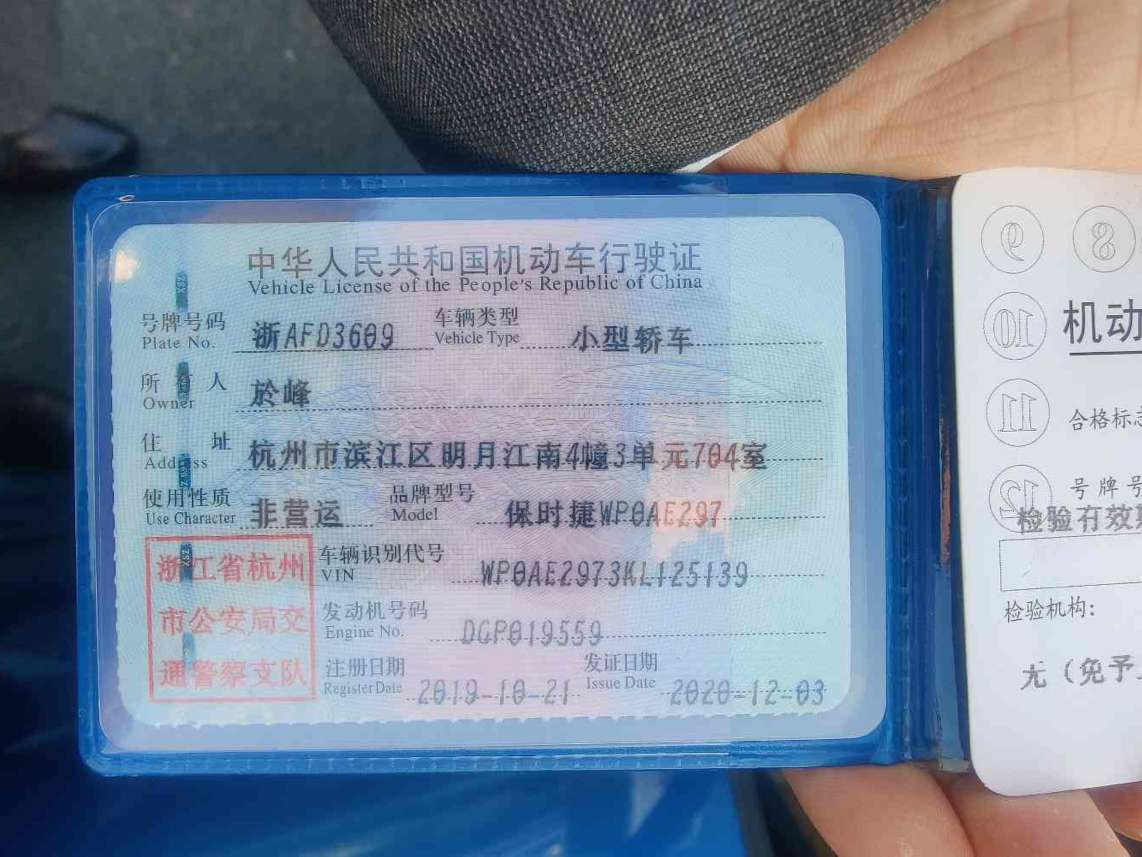 中华人民共和国机动车行驶证
Vehicle License of the People's Republic of China
号牌号码 浙AFD3609 车辆类型 小型轿车
Plate No. Vehicle Type
所有人 於峰
Owner
住址 杭州市滨江区明月江南4幢3单元704室
Address
使用性质 非营运 品牌型号 保时捷WP0AE297
Use Character Model
浙江省杭州
市公安局交
通警察支队
车辆识别代号 WP0AE2973KL125139
VIN
发动机号码 DGP019559
Engine No.
注册日期 2019-10-21 发证日期 2020-12-03
Register Date Issue Date
9 8
10 机动
11 合格标志
12 号牌号
检验有效期
检验机构:
(免予